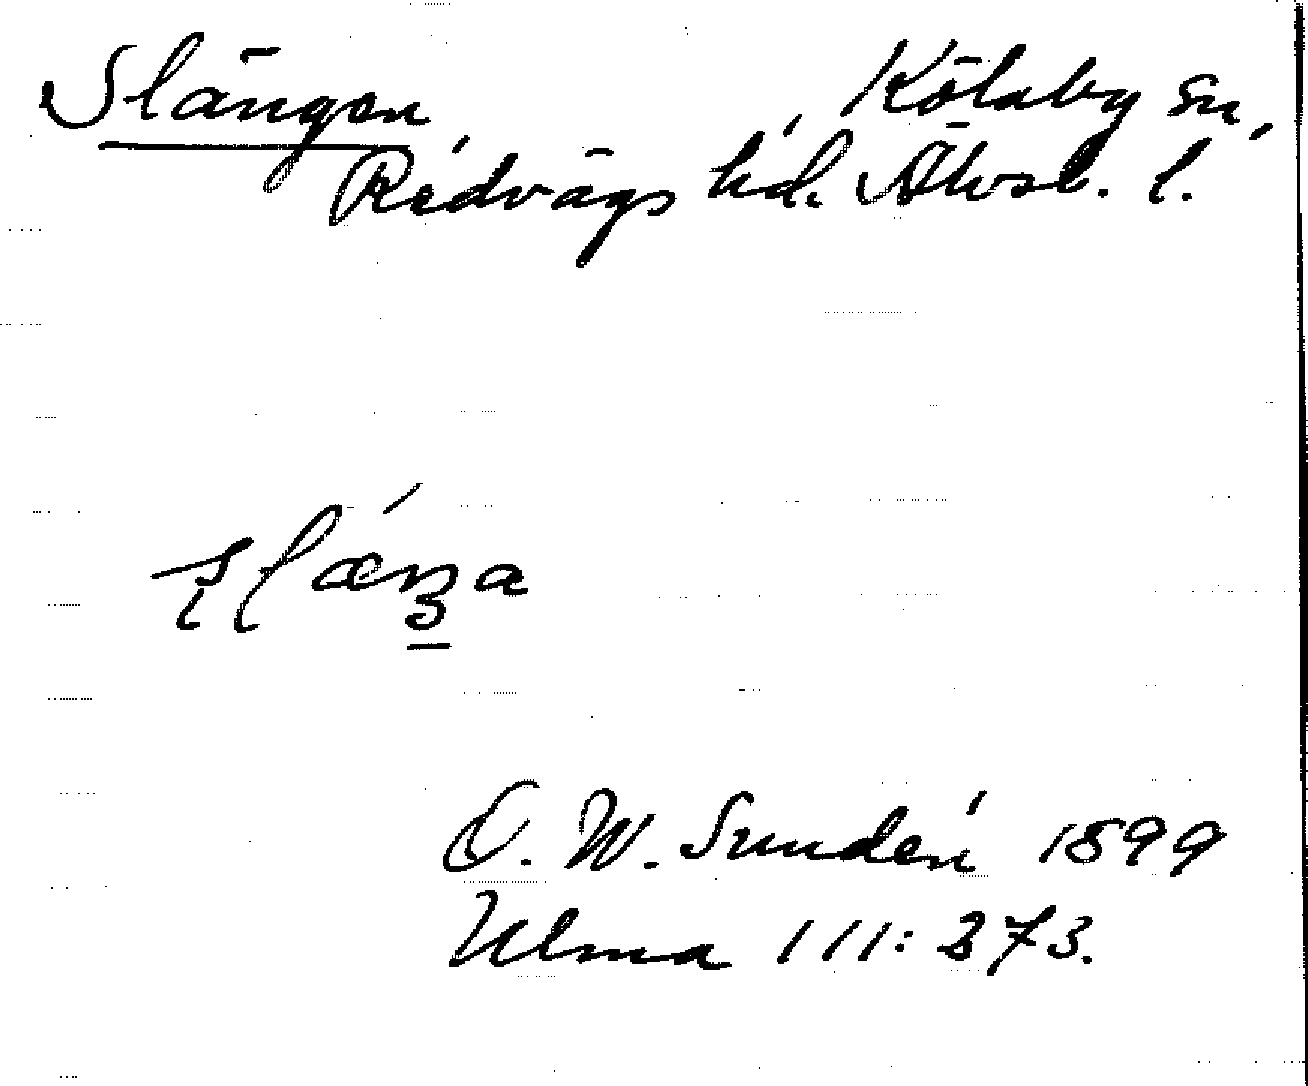 Slängen Kölaby sn,
Redvägs hd. Älvsb. l.
O. W. Sundén 1899
Ulma 111: 273.